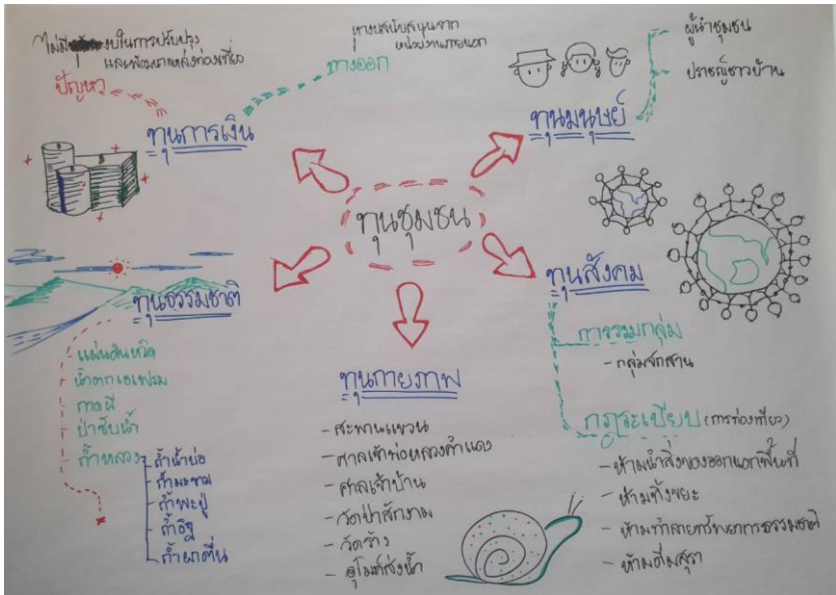 ไม่มีงบในการปรับปรุง
และพัฒนาแหล่งท่องเที่ยว
ปัญหา
หางบสนับสนุนจาก
หน่วยงานภายนอก
ทางออก
ทุนการเงิน
ผู้นำชุมชน
ปราชญ์ชาวบ้าน
ทุนมนุษย์
ทุนชุมชน
ทุนธรรมชาติ
- แผ่นดินหวิด
- น้ำตกเอเฟรม
- กาดผี
- ป่าซับน้ำ
- ถ้ำหลวง
- ถ้ำน้ำบ่อ
- ถ้ำมะขาม
- ถ้ำพะปู่
- ถ้ำอิฐ
ทุนกายภาพ
- สะพานแขวน
- ศาลเจ้าพ่อหลวงคำแดง
- ศาลเจ้าบ้าน
- วัดป่าสักงาม
- วัดร้าง
- อุโมค์ส่งน้ำ
ทุนสังคม
การรวมกลุ่ม
- กลุ่มจักสาน
กฎระเบียบ (การท่องเที่ยว)
- ห้ามนำสิ่งของออกนอกพื้นที่
- ห้ามทิ้งขยะ
- ห้ามทำลายทรัพยาการธรรมชาติ
- ห้ามดื่มสุรา